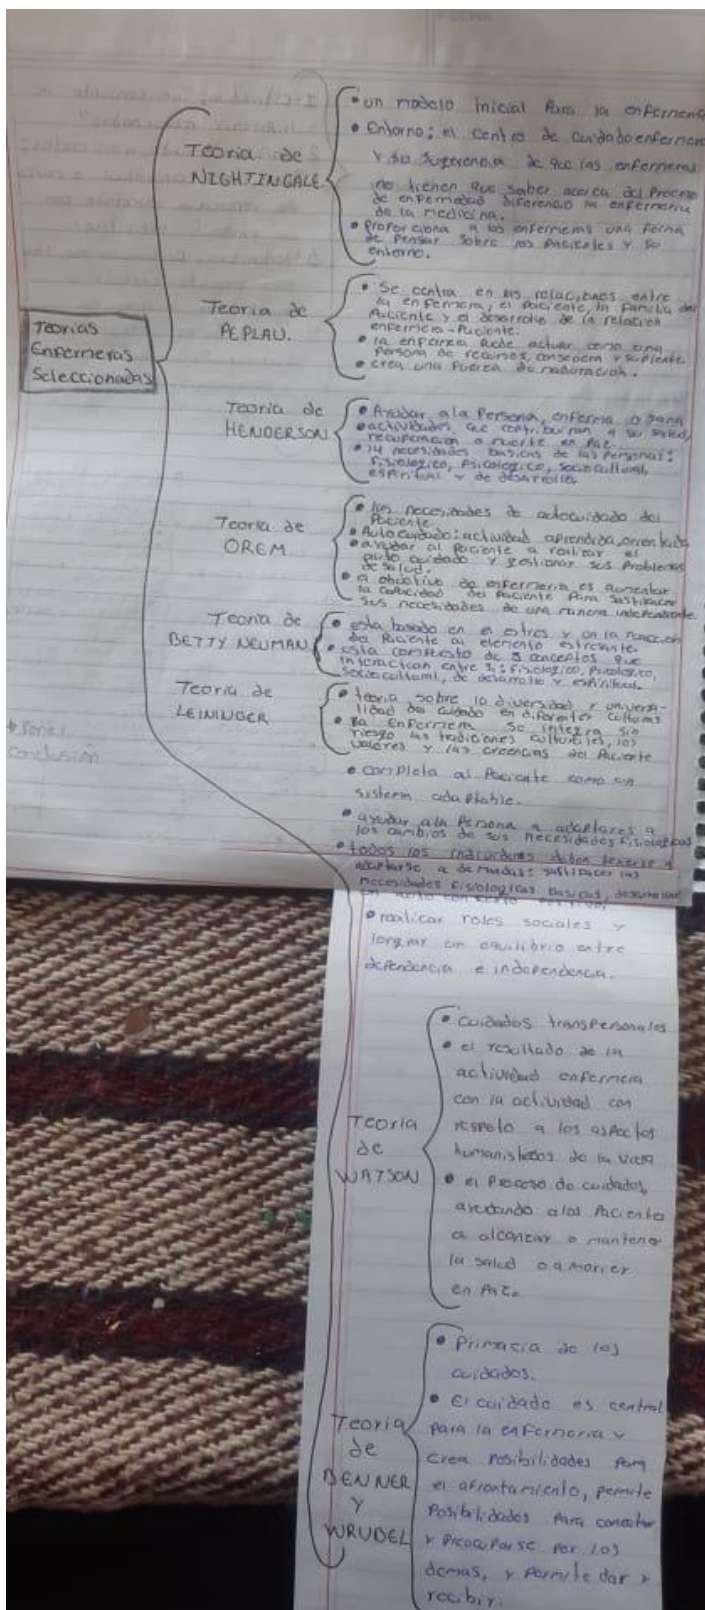 Teorías
Enfermeras
Seleccionadas
Teoría de
NIGHTINGALE.
• un modelo inicial Para la enfermería
• Entorno: el centro de cuidado enfermero
y su sugerencia de que las enfermeras
no tienen que saber acerca del Proceso
de enfermedad diferencio la enfermeria
de la medicina.
• Proporciona a las enfermeras una forma
de pensar sobre los pacientes y su
entorno.
Teoría de
PEPLAU.
• Se centra en las relaciones entre
la enfermera, el paciente, la familia del
Paciente y el desarrollo de la relación
enfermera-Paciente.
• la enfermera Puede actuar como una
Persona de recursos, consejera y suplente.
• crea una fuerza de maduración.
Teoría de
HENDERSON
• Ayudar a la Persona, enferma o sana
• actividades que contribuiran a su salud,
recuperacion o muerte en Paz.
• 14 necesidades basicas de las Personas:
fisiologico, Psicologico, sociocultural,
espiritual y de desarrollo.
Teoría de
OREM
• las necesidades de autocuidado del
Paciente.
• Autocuidado: actividad aprendida, orientada
• ayudar al Paciente a realizar el
auto cuidado y gestionar sus Problemas
de salud.
• el objetivo de enfermeria es aumentar
la capacidad del Paciente Para satisfacer
sus necesidades de una manera independiente
Teoría de
BETTY NEUMAN
• esta basado en el estres y en la reaccion
del Paciente al elemento estresante.
• esta compuesto de 5 conceptos que
interactuan entre si: fisiologico, Psicologico,
sociocultural, de desarrollo y espiritual.
Teoría de
LEININGER
• teoria sobre la diversidad y universa-
lidad del cuidado en diferentes culturas
• La Enfermera se integra sin
riesgo las tradiciones culturales, los
valores y las creencias del Paciente
Poner
Conclusión
• completa al Paciente como un
sistema adaptable.
• ayudar a la Persona a adaptarse a
los cambios de sus necesidades fisiologicas
• todos los indicadores deben tenerse y
adaptarse a demandas: satisfacer las
necesidades fisiologicas basicas, desarrollar
• realicar roles sociales y
lorgrar un equilibrio entre
dependencia e independencia.
Teoría
de
WATSON
• Cuidados transpersonales
• el resultado de la
actividad enfermera
con la actividad con
respeto a los aspectos
humanisticos de la vida
• el Proceso de cuidados,
ayudando a los Paciente
a alcanzar o mantener
la salud o a morier
en Paz.
Teoría
de
BENNER
Y
WRUBEL
• Primacia de los
cuidados.
• El cuidado es central
Para la enfermeria y
crea Posibilidades Para
el afrontamiento, permite
Posibilidades Para conectar
y Preocuparse por los
demas, y Permite dar y
recibir.